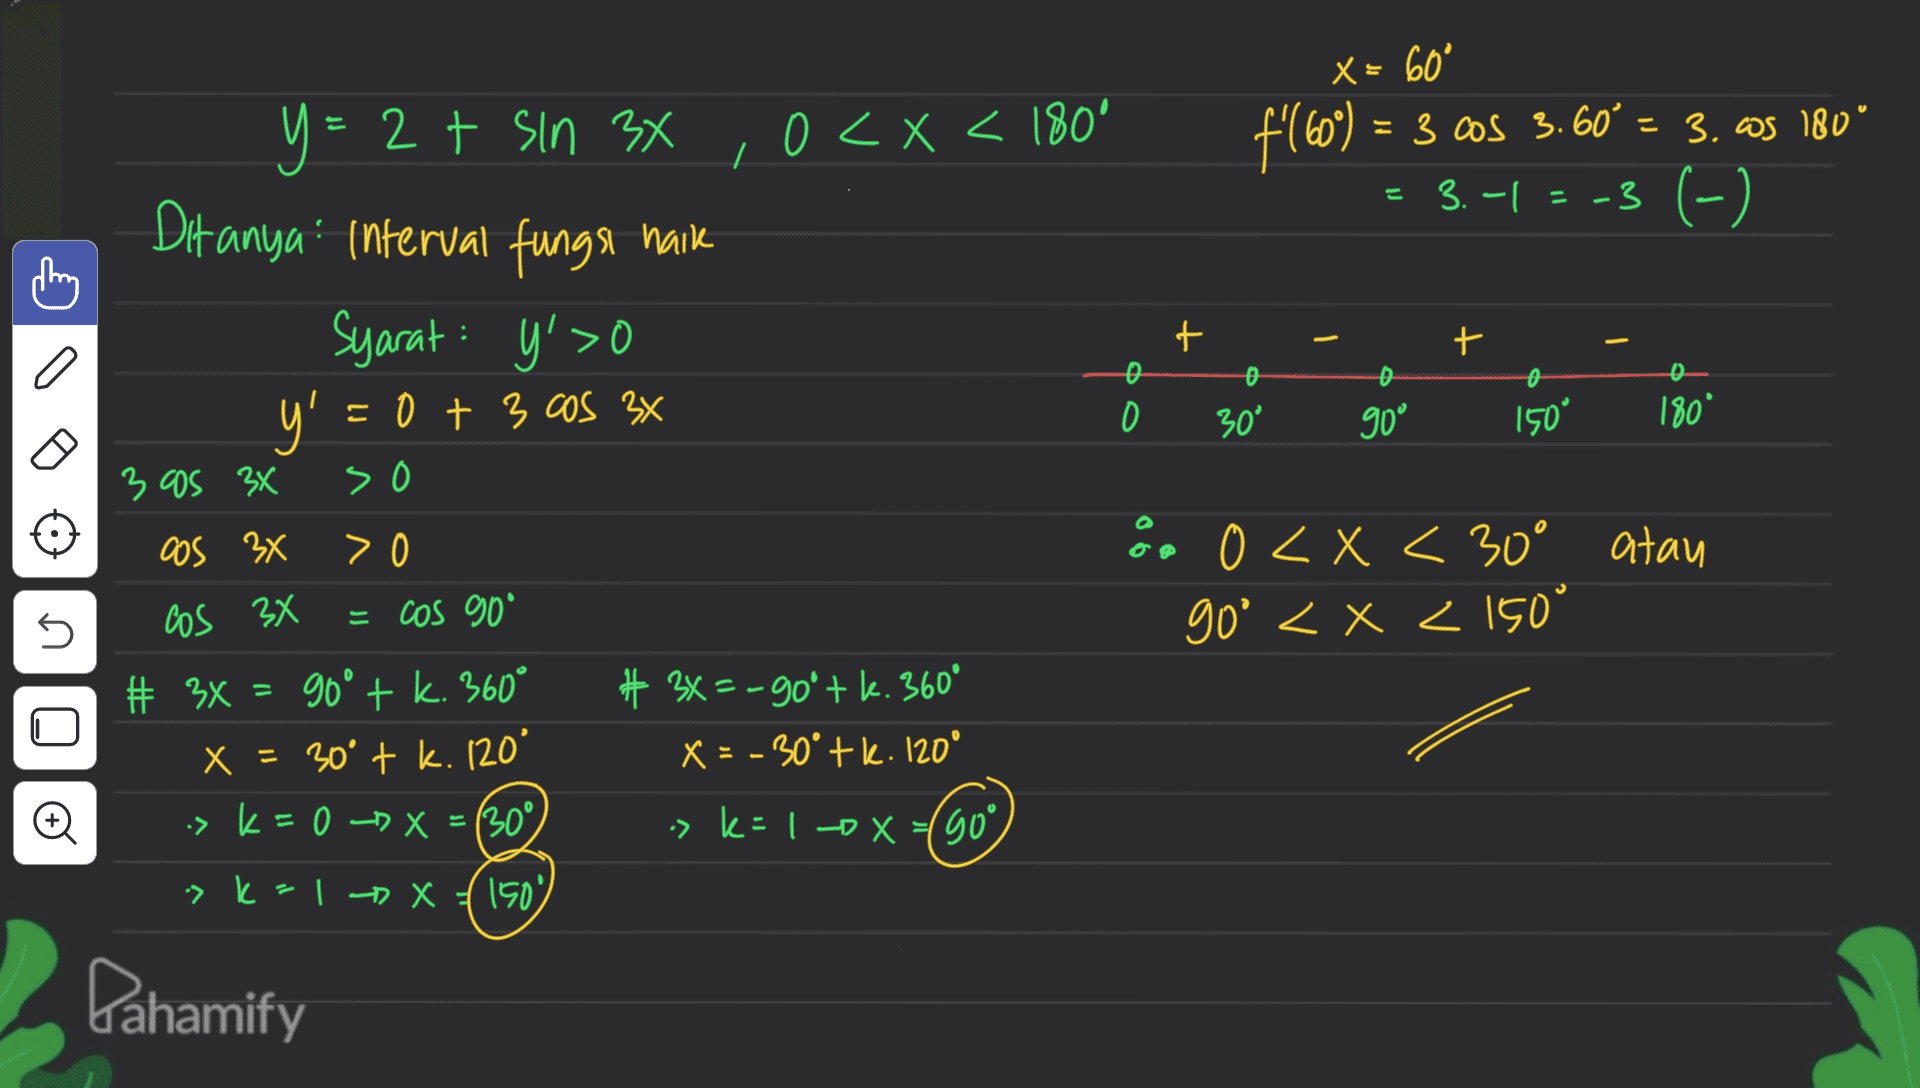 y = 2 + sin 3x , 0 < x < 180°
Ditanya : interval fungsi naik
Syarat : y' > 0
y' = 0 + 3 cos 3x
3 cos 3x > 0
cos 3x > 0
cos 3x = cos 90°
# 3x = 90° + k. 360°
x = 30° + k. 120°
·> k = 0 → x = 30°
·> k = 1 → x = 150°
# 3x = -90° + k. 360°
x = -30° + k. 120°
·> k = 1 → x = 90°
x = 60°
f'(60°) = 3 cos 3.60° = 3. cos 180°
= 3. -1 = -3 (-)
+ - + -
0 30° 90° 150° 180°
∴ 0 < x < 30° atau
90° < x < 150°
Pahamify